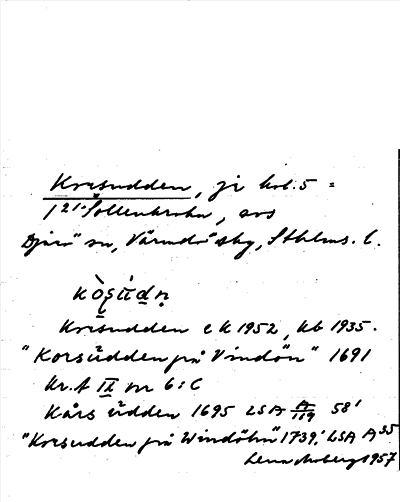 Korsudden, jr kol. 5 =
1 21. Sollenkroka, avs
Djurö sn, Värmdö sky, Sthlms. l.
kòʂúdṇ
Korsudden ek 1952, kb 1935.
"Korsüdden på Vindön" 1691
kr. A II nr 6:C
Kårs üdden 1695 LSA A/119 58¹
"Korsudden på Windöhn" 1739, LSA A 35
1957